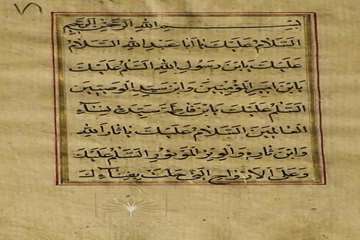 ٧٦
بسم الله الرحمن الرحيم
السلام عليك يا أبا عبد الله السلام
عليك يا بن رسول الله السلم عليك
يا بن امير المؤمنين وابن سيد الوصيين
السلم عليك يا بن فاطمة سيدة نساء
العالمين السلام عليك يا ثار الله
وابن ثاره والوتر الموتور السلم عليك
وعلى الارواح التي حلت بفنائك